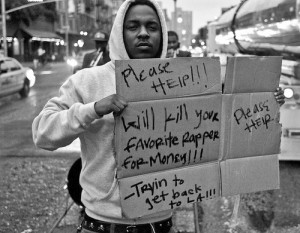 Please
Help!!!
Will kill your
favorite rapper
for money!!!
-Tryin to
get back
to LA!!!
Please
Help.